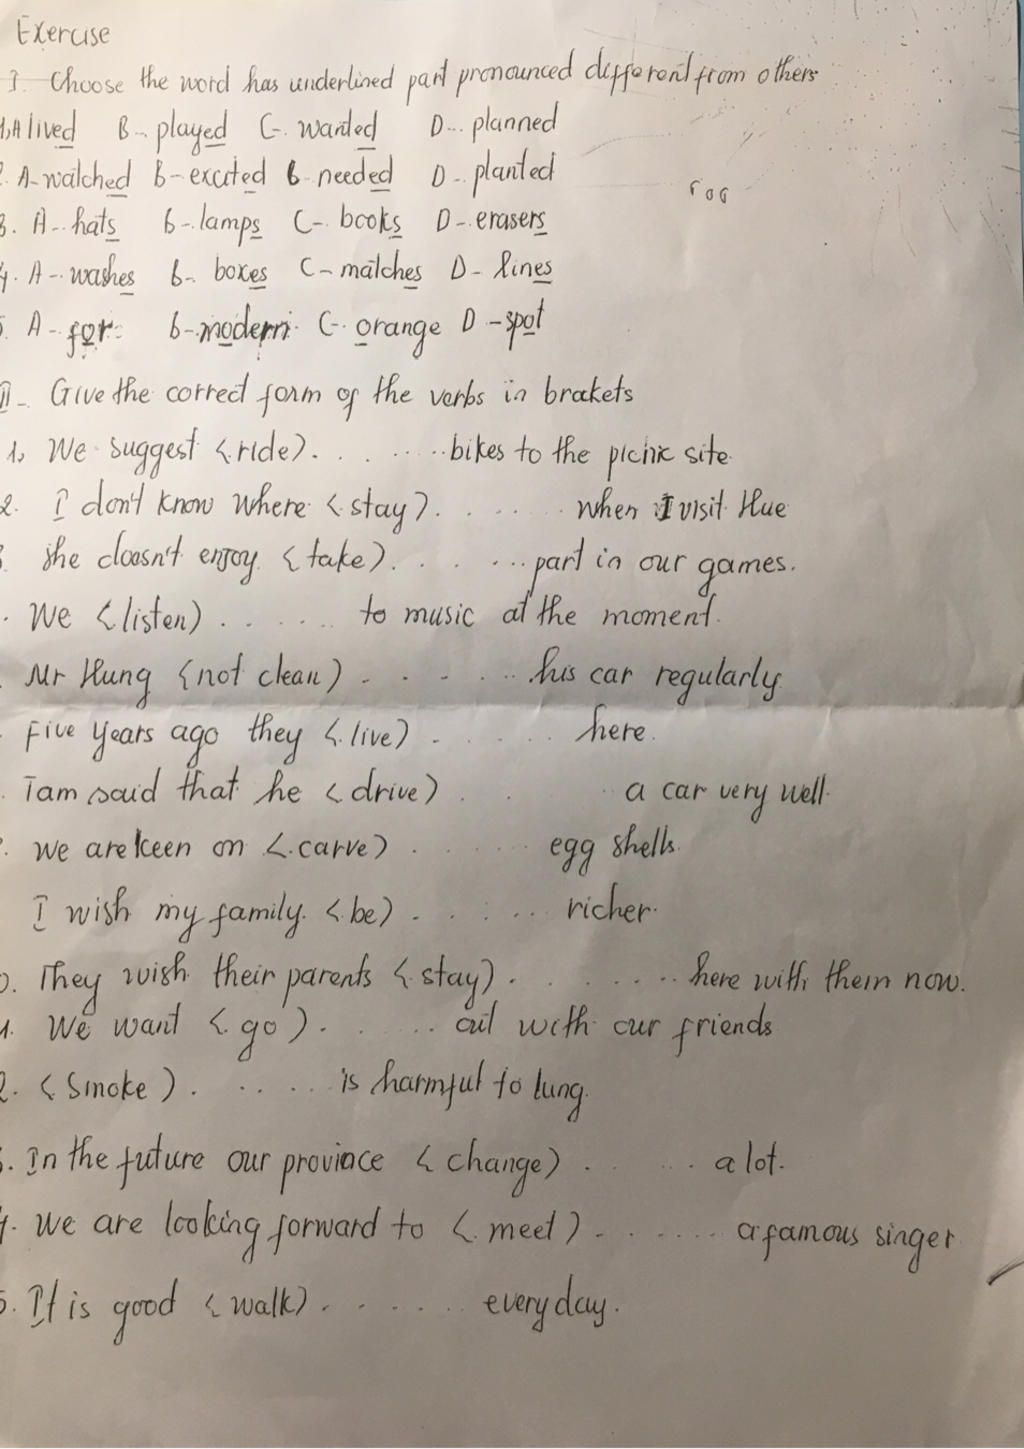 Exercise
I. Choose the word has underlined part pronounced different from others
1, A lived B- played C- wanted D- planned
2. A- watched B- excited C- needed D- planted
3. A- hats B- lamps C- books D- erasers
4. A- washes B- boxes C- matches D- lines
5. A- for B- modern C- orange D- spot
II- Give the correct form of the verbs in brackets
1, We suggest (ride)......bikes to the picnic site
2. I don't know where (stay)....... when I visit Hue
3. She doesn't enjoy (take).......part in our games.
. We (listen)....... to music at the moment.
. Mr Hung (not clean)....... his car regularly
. Five years ago they (live)...... here.
. Tam said that he (drive).. a car very well.
. We are keen on (carve)...... egg shells.
I wish my family (be)...... richer.
0. They wish their parents (stay)....... here with them now.
1. We want (go)...... out with our friends
2. (Smoke)...... is harmful to lung.
3. In the future our province (change)...... a lot.
4. We are looking forward to (meet)....... a famous singer
5. It is good (walk)...... everyday.